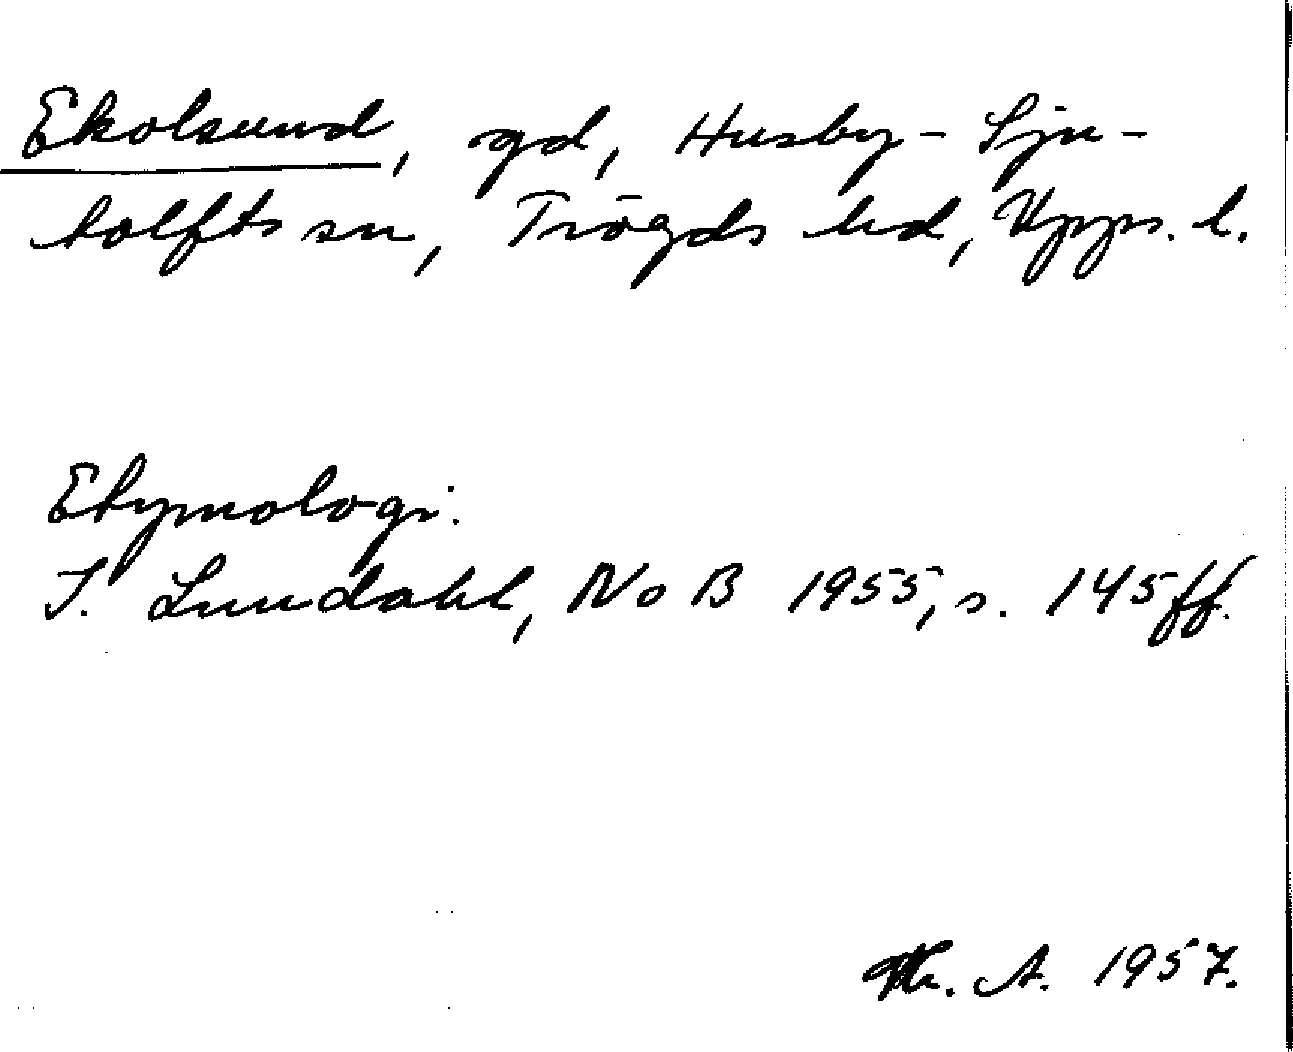 Ekolsund, gd, Husby-Sju-
tolfts sn, Trögds hd, Upps. l.
Etymologi:
I. Lundahl, NoB 1955, s. 145 ff.
A. 1957.